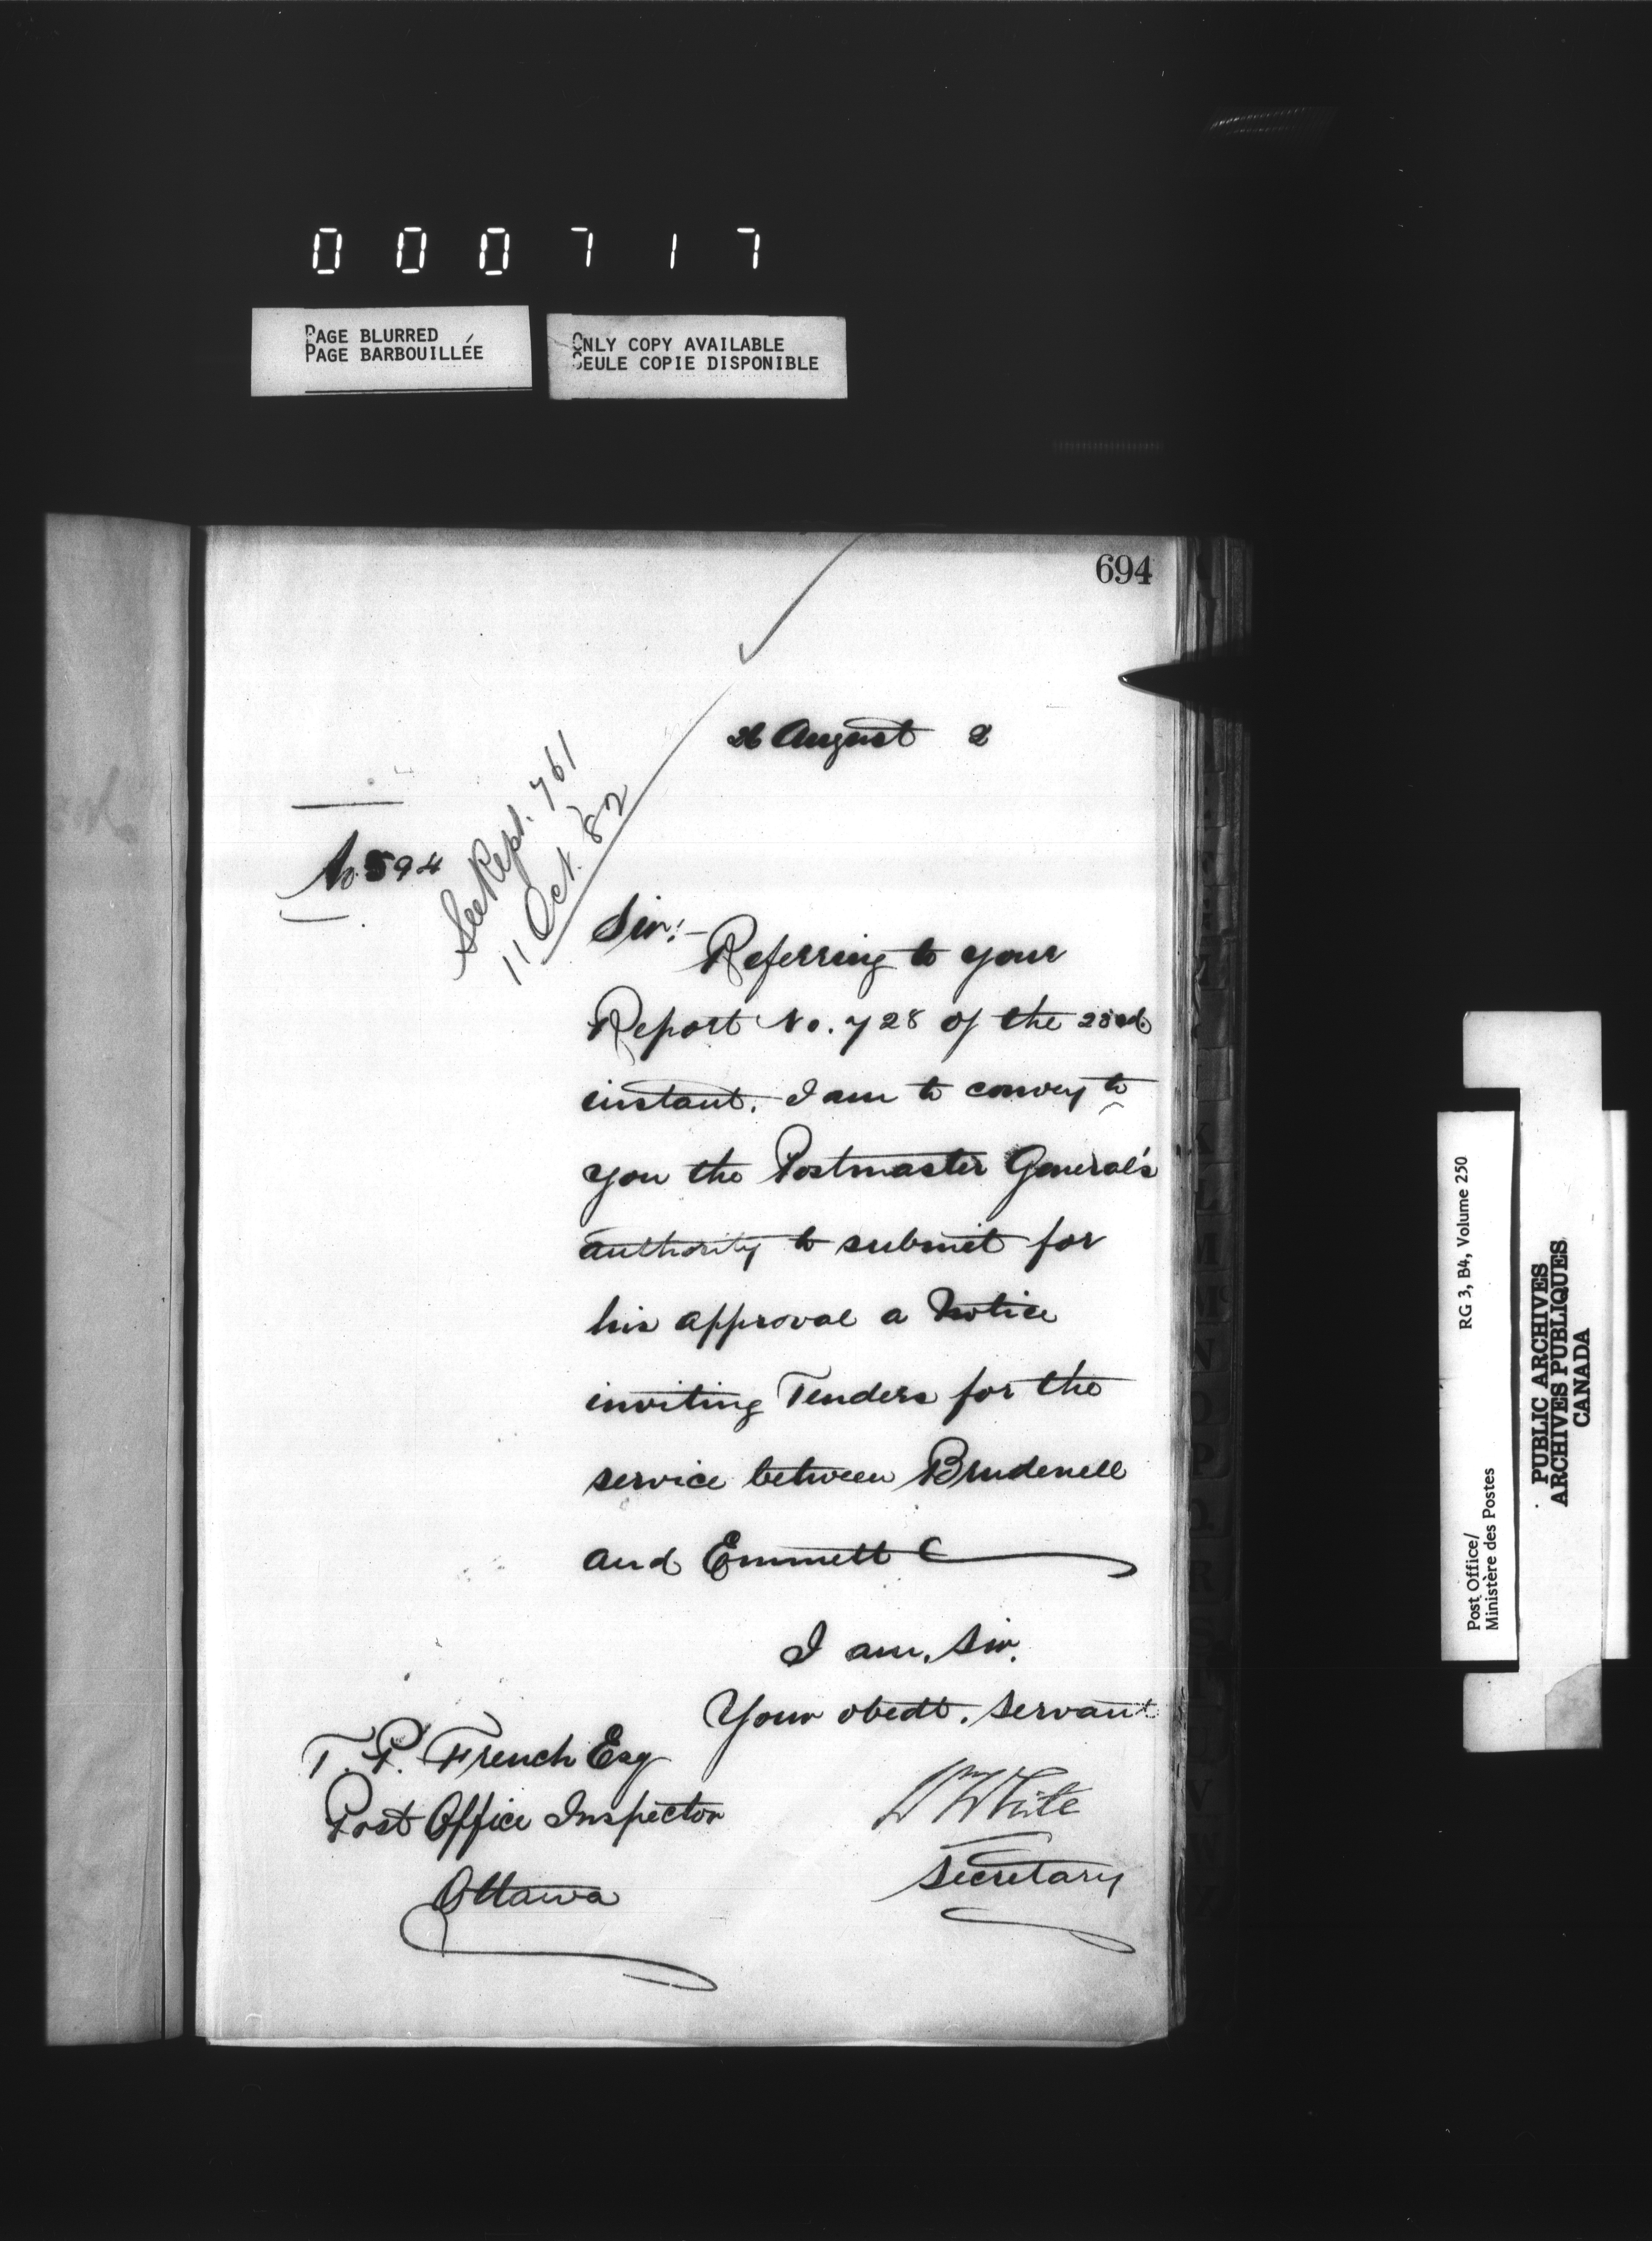 000717
PAGE BLURRED
PAGE BARBOUILLÉE
ONLY COPY AVAILABLE
SEULE COPIE DISPONIBLE
694
26 August 2
No. 594
See Rept. 761
11 Oct. 82
Sir:-
Referring to your
Report No. 728 of the 23rd.
instant. I am to convey to
you the Postmaster General's
authority to submit for
his approval a Notice
inviting Tenders for the
service between Brudenell
and Emmett
I am, Sir.
Your obedt. servant
T. P. French Esq
Post Office Inspector
Ottawa
Wm White
Secretary
Post Office/
Ministère des Postes
RG 3, B4, Volume 250
PUBLIC ARCHIVES
ARCHIVES PUBLIQUES
CANADA